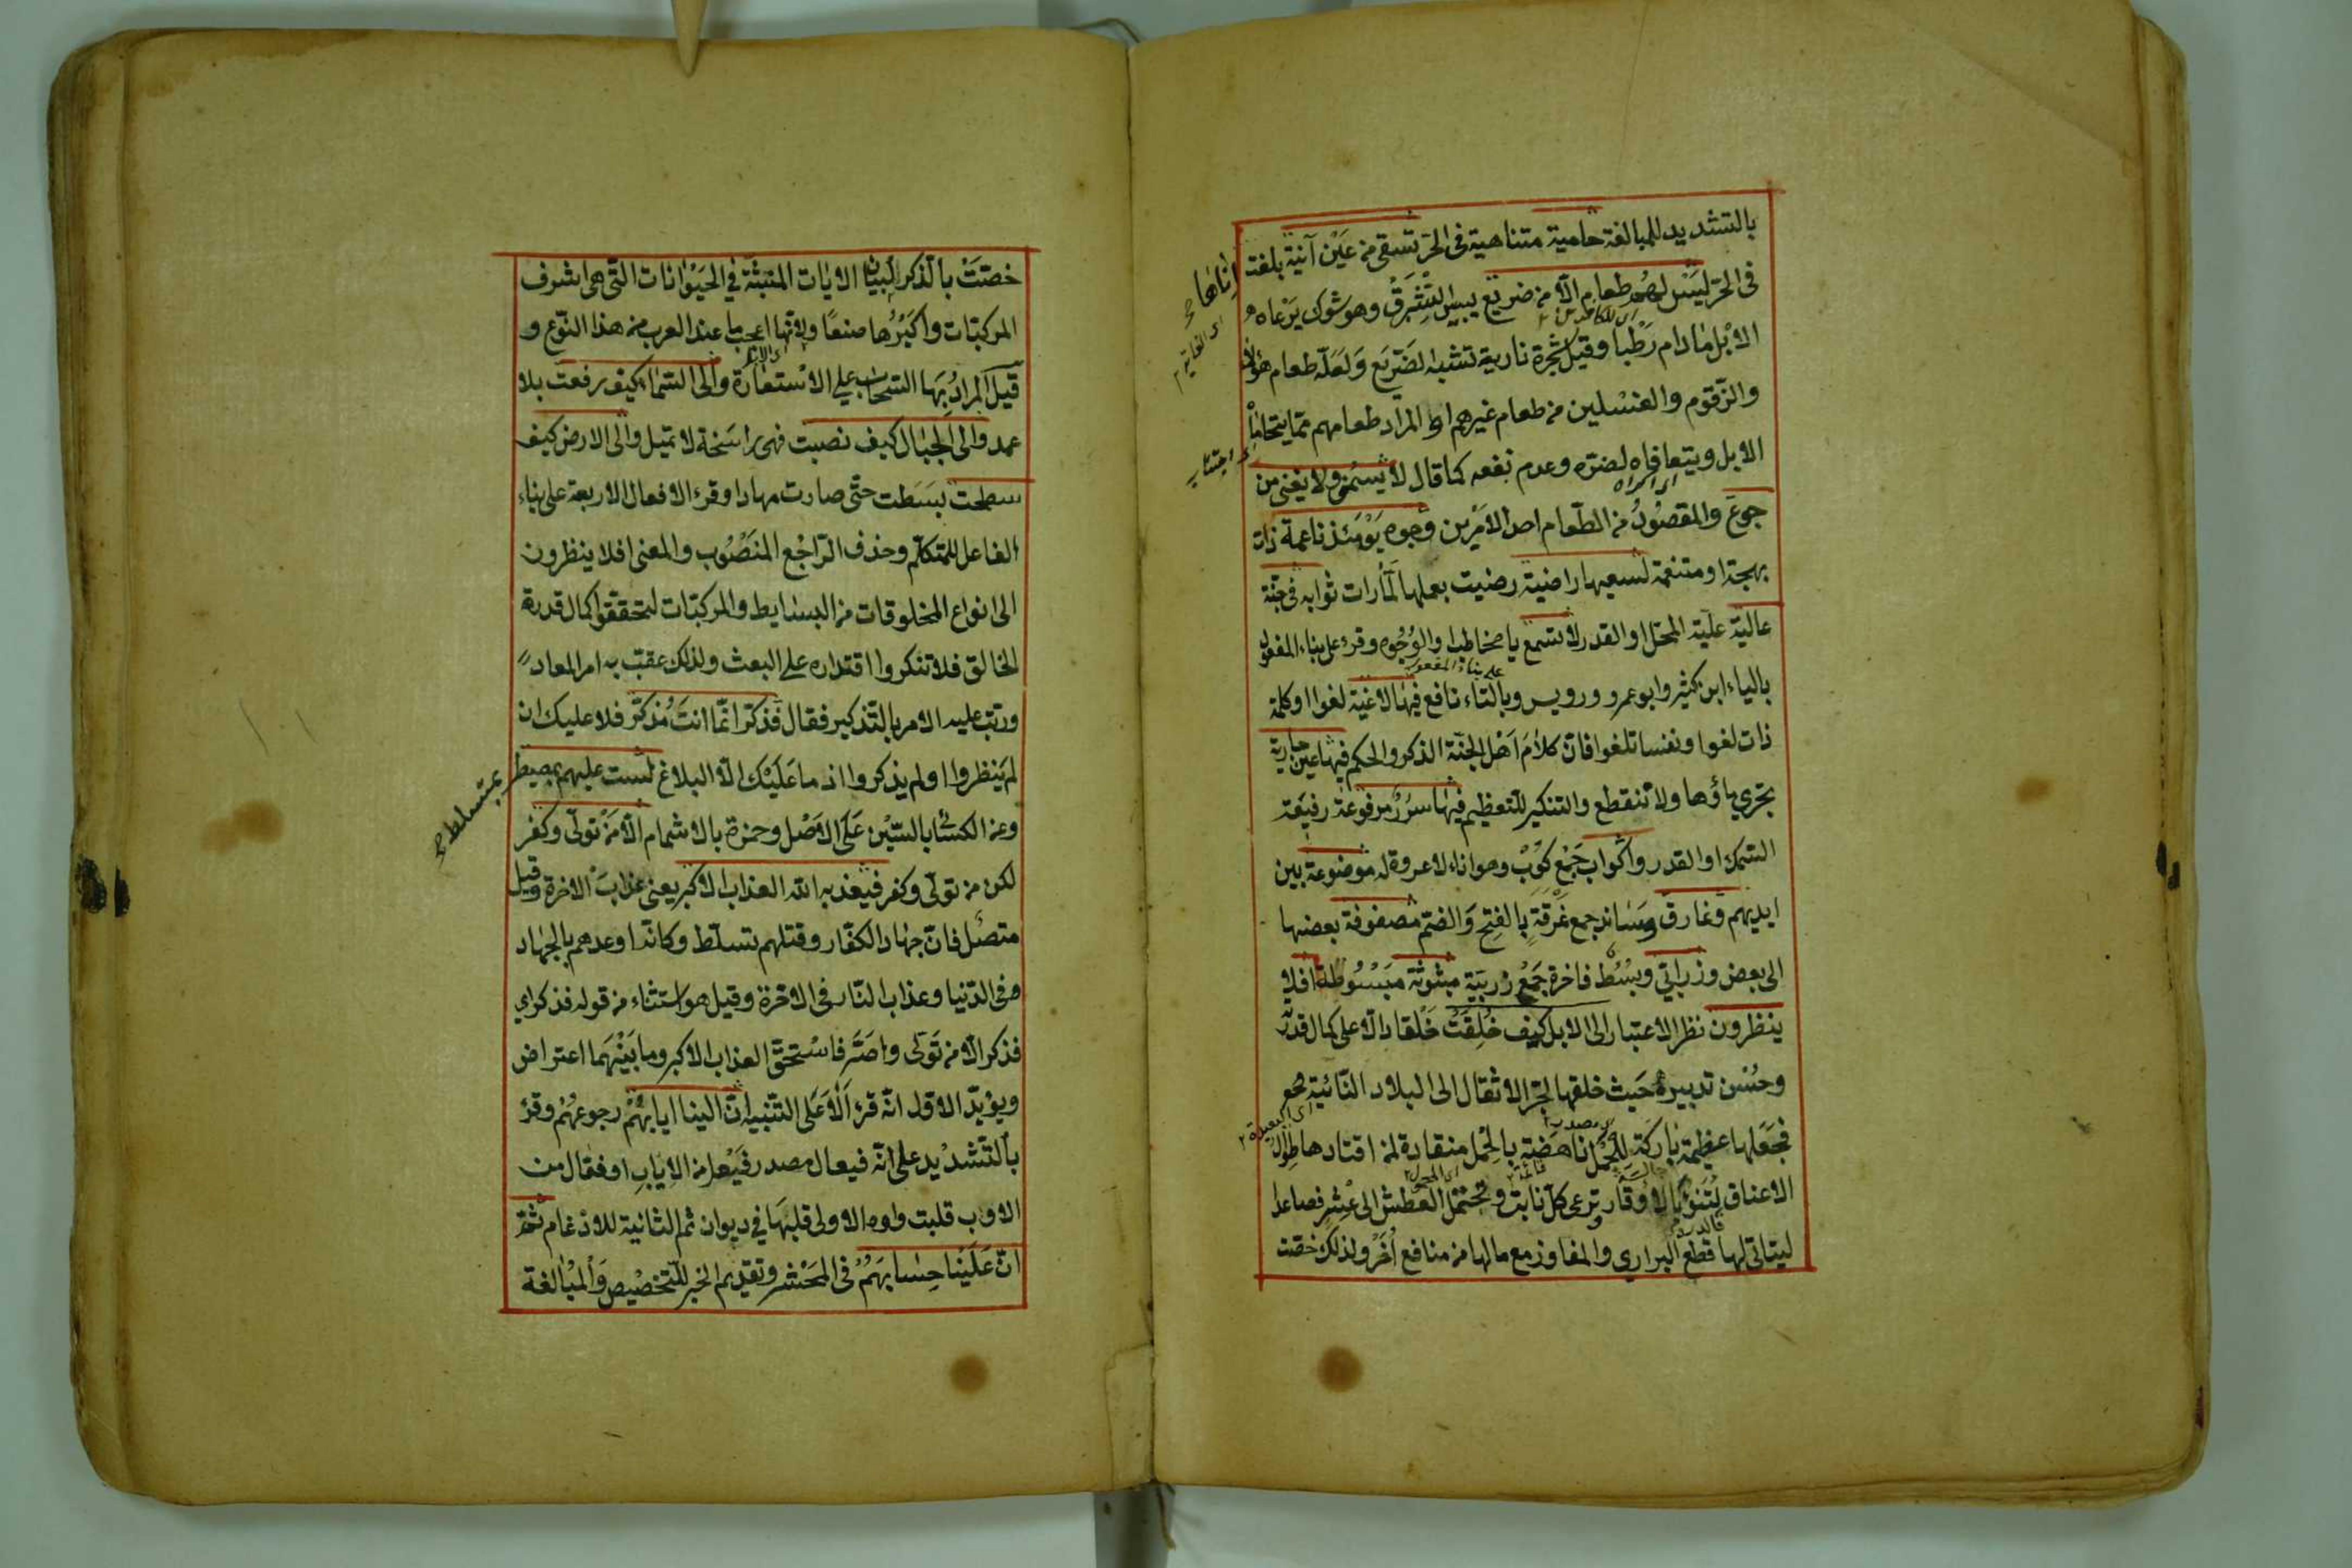 بالتشديد للمبالغة حامية متناهية فى الحر تسقى من عَيْن آنية بلغت
إناها صح
فى الحرّ ليْسَ لهُم طعام الّا من ضريع يبيس الشِّبرِقْ وهو شوك يَرْعاه
الابْل مادام رَطْبا وقيل شجرة نارية تشبه الضَرِيَع وَلَعَلّه طعام هؤلاء
والزّقّوم والغسْلين من طعام غيرهم او المراد طعامهم ممّا يتحاماه
الابل ويتعافاه لضرّه وعدم نفعه كما قال لا يُسْمن ولا يغنى من
جوعَ والمقصُوُدُ من الطّعام احد الامَرْين وجوه يَوْمَئذ ناعمة ذات
بهجة او متنعمة لسعيها راضية رضيت بعملها لَمّا رات ثوابه فى جنّة
عاليَة عليّة المحَلّ او القدر لا تسمع يا مخاطب او الوُجُوه وقرء على بناء المفعول
على بناء المفعول
بالياء ابن كثير وابو عمرو ورويس وبالتاء نافع فيها لاغيَة لغوا او كلمة
ذات لغو او نفسا تلغو افانّ كلام اَهْل الجنّة الذكر والحكم فيها عين جارية
يجرى ماؤها ولا تنقطع والتنكير للتعظيم فيها سرُرٌ مرفوعة رفيَعة
السّمك او القدر واكْواب جَمْع كوُبْ وهو اناء لا عروة له موضوعة بين
ايديهم ونمارق ومَساند جمع نمرُقَةٍ بالفتح وَالضمّ مصفوفة بعضها
الى بعض وزرابىّ وبسُط فاخرة جَمْعُ زربيّةٍ مبثوثة مَبْسُوُطة افلا
ينظرون نظر الاعتبار الى الابل كيف خُلِقَتْ خَلْقا دالّا على كمال قدرته
وحُسْن تدبيره حَيث خلقها لجرّ الاثقال الى البلاد النّائيَة
اى البعيدة
فجَعَلها عظيمة بَاركَة للحَمْل ناهَضة بالحْمل منقادة لمن اقتادها طِوَال
الاعناق لتَنؤ بالاوْقار ترعى كلّ نابت وتحتمل العَطش الى عِشْرٍ فصاعدا
ليتاتى لها قَطعُ البرارى والمفاوز مع مالها من منافع اُخَرْ ولذلك خصّت
خصّتَ بالذكر لبيان الايات المنبثّة فى الحيَوْانات التّى هى اشرف
المركبّات واكثرُها صنعًا ولانّها اعجب ما عند العرب من هذا النّوع و
قيَل المرادُ بِهَا السّحاب على الاسْتعارَة والى السّماء كيف رفعت بلا
عمد والى الجبْال كيف نصبت فهى راسَخة لا تميل والى الارض كيف
سطحت بسَطت حتّى صارت مهادا وقرء الافعال الاربعة على بناء
الفاعل للمتكلّم وحذف الرّاجْع المنَصْوُب والمعنى افلا ينظرون
الى انواع المخلوقات من البسايط والمركبّات ليتحققوا كمال قدرة
الخالق فلا تنكروا اقتداره على البعث ولذلك عقّب به امر المعاد
ورتب عليه الامر بالتّذكير فقال فَذكّر انّما انتَ مُذكّر فلا عليك ان
لم يَنظروا او لم يذكروا اذ ما عَلَيْك الّا البلاغ لسْت عليهم بمصيطر
بمتسلط صح
وعن الكسائى بالسّيْن عَلَى الاَصْل وحمزة بالاشمام الّا مَنْ تولّى وكفر
لكن من تولّى وكفر فيَعذبه الله العذاب الاكبر يعنى عذابَ الاخرة وقيل
متصّل فانّ جهاد الكفّار وقتلهم تسلّط وكانّه اوعدهم بالجهاد
فى الدّنيا وعذاب النّار فى الاخرة وقيل هو استثناء من قوله فذكر اى
فذكر الّا من تَوَلّى واصَرّ فاسْتحقّ العذاب الاكبر وما بَيْنهَما اعتراض
ويؤيّد الاوّل انّه قرء اَلَا عَلَى التنّبيه انّ الينا ايابهُمْ رجوعهُمْ وقرء
بالتّشديْد على انّه فيعال مصدر فَيْعل من الايابِ او فعّال من
الاوب قلبت واوه الاولى قلبَها فى ديوان ثم الثانية للادْغام ثمّ
انّ عَلَيْنا حِسابهَمُ فى المحَشر وتقدَيم الخبر للتّخصْيصِ وَالمْبالغة